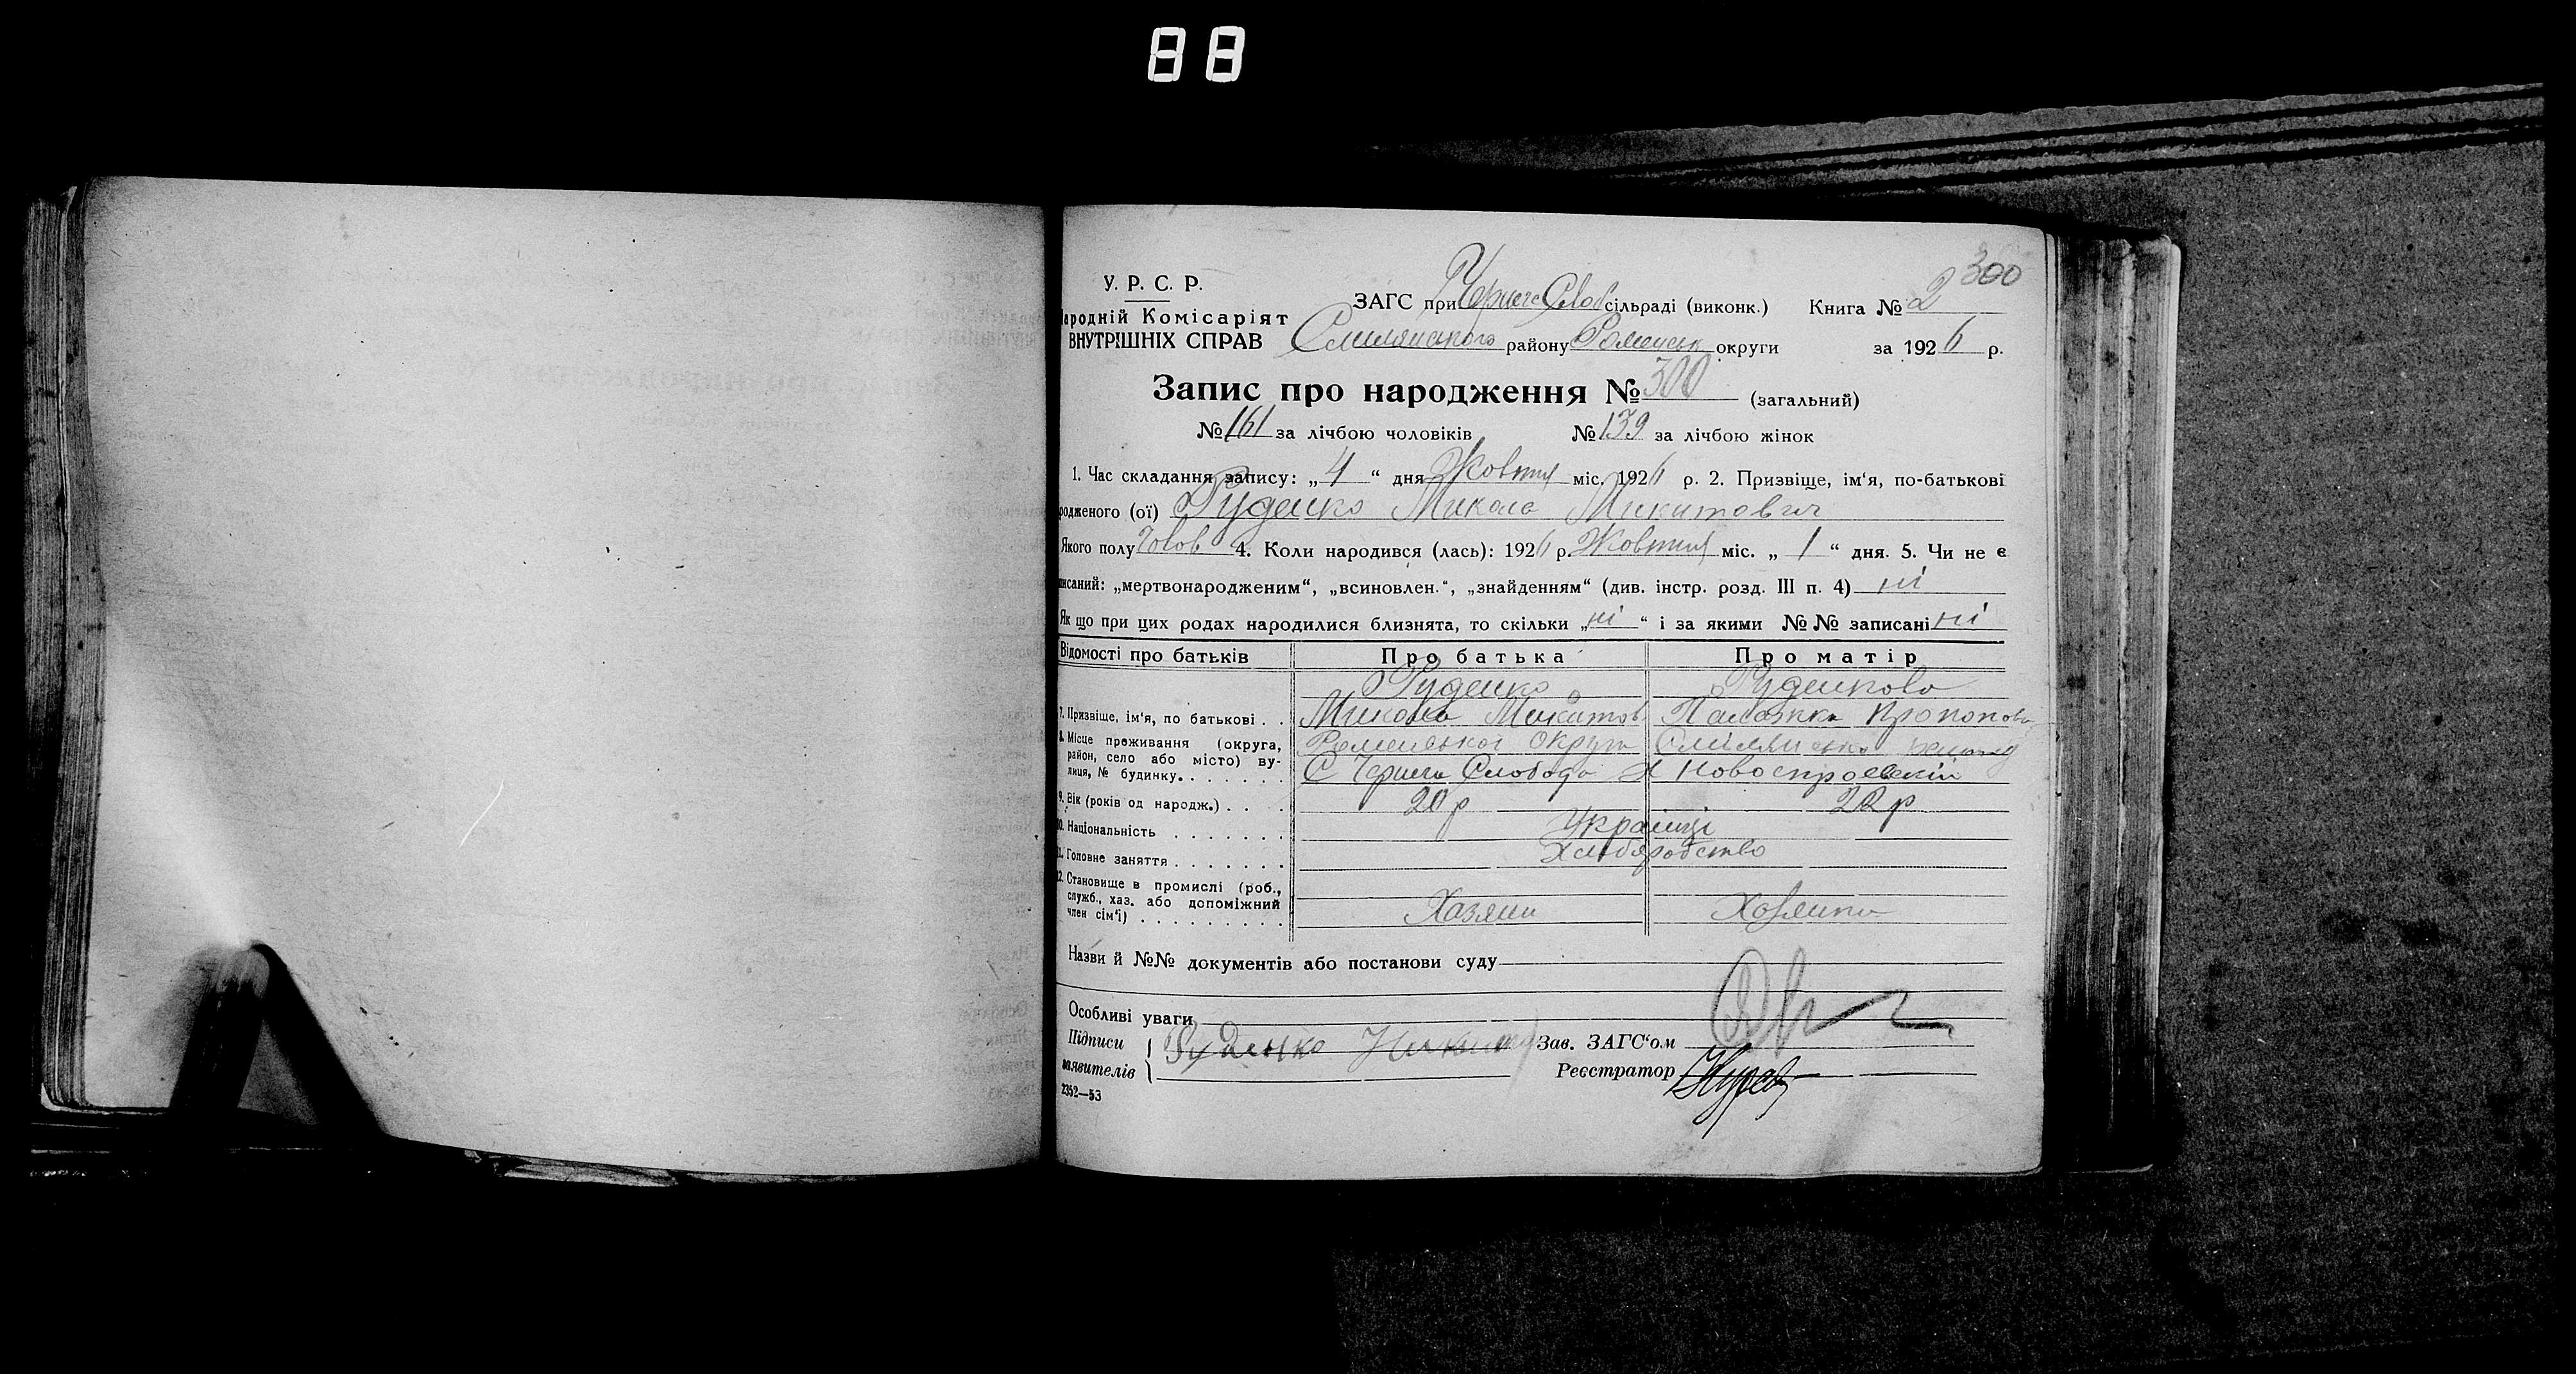 88
300
У. Р. С. Р.
ародній Комісаріят
ВНУТРІШНІХ СПРАВ
ЗАГС при Чернече Слоб сільраді (виконк.) Книга № 2
Смилянського району Роменськ округи за 1926 р.
Запис про народження № 300 (загальний)
№ 161 за лічбою чоловіків № 139 за лічбою жінок
1. Час складання запису: „4“ дня Жовтня міс. 1926 р. 2. Призвіще, ім‘я, по-батькові
родженого (ої) Руденко Микола Микитович
Якого полу Чолов 4. Коли народився (лась): 1926 р. Жовтня міс. „1“ дня. 5. Чи не є
писаний: „мертвонародженим“, „всиновлен.“, „знайденням“ (див. інстр. розд. III п. 4) ні
Як що при цих родах народилися близнята, то скільки „ні“ і за якими №№ записані ні
Відомості про батьків Про батька Про матір
Руденко Руденкова
7. Призвіще, ім‘я, по батькові . . Микола Микитов Палажка
8. Місце проживання (округа, район, село або місто) вулиця, № будинку. Роменської Округи
С Чернеча Слобода Х
9. Вік (років од народж.) . . . 20 р 20 р
10. Національність . . . . . . . Українці
11. Головне заняття . . . . . . . Хліборобство
12. Становище в промислі (роб.,
служб., хаз. або допоміжний
член сім‘ї) . . . . . . . . . Хазяин Хазяйка
Назви й №№ документів або постанови суду
Особливі уваги
Підписи
заявителів
Руденко Зав. ЗАГС‘ом
Реєстратор
2352—53